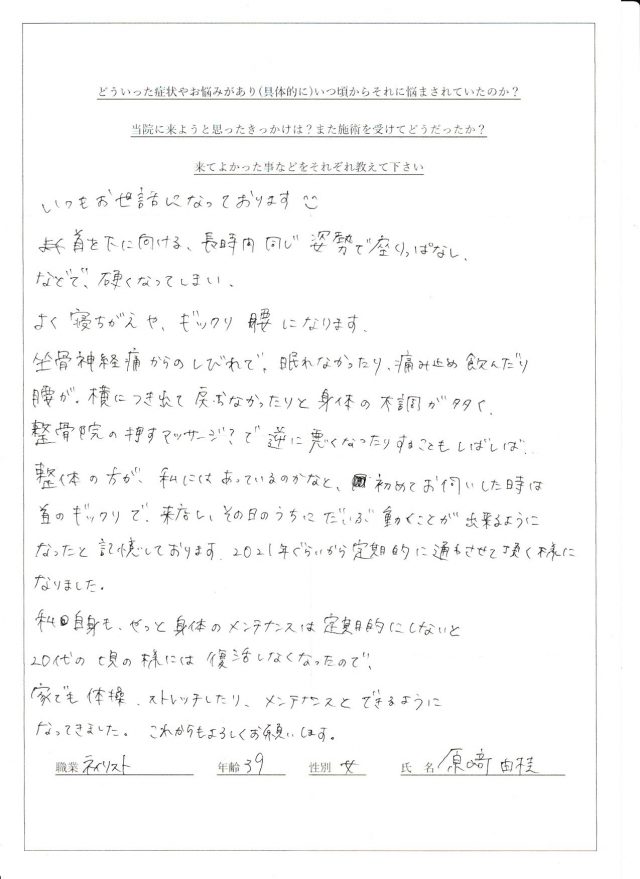 どういった症状やお悩みがあり(具体的に)いつ頃からそれに悩まされていたのか？
当院に来ようと思ったきっかけは？また施術を受けてどうだったか？
来てよかった事などをそれぞれ教えて下さい
いつもお世話になっております
よく首を下に向ける、長時間同じ姿勢で座りっぱなし、
などで、硬くなってしまい、
よく寝ちがえや、ギックリ腰になります。
坐骨神経痛からのしびれで、眠れなかったり、痛み止め飲んだり
腰が、横につき出て戻らなかったりと身体の不調が多く、
整骨院の押すマッサージ？で逆に悪くなったりすることもしばしば…
整体の方が、私にはあっているのかなと、初めてお伺いした時は
首のギックリで、来店し、その日のうちにだいぶ動くことが出来るように
なったと記憶しております。2021年ぐらいから定期的に通わさせて頂く様に
なりました。
私自身も、やっと身体のメンテナンスは定期的にしないと
20代の頃の様には復活しなくなったので、
家でも体操、ストレッチしたり、メンテナンスとできるように
なってきました。これからもよろしくお願いします。
職業 ネイリスト 年齢 39 性別 女 氏名 原﨑 由桂